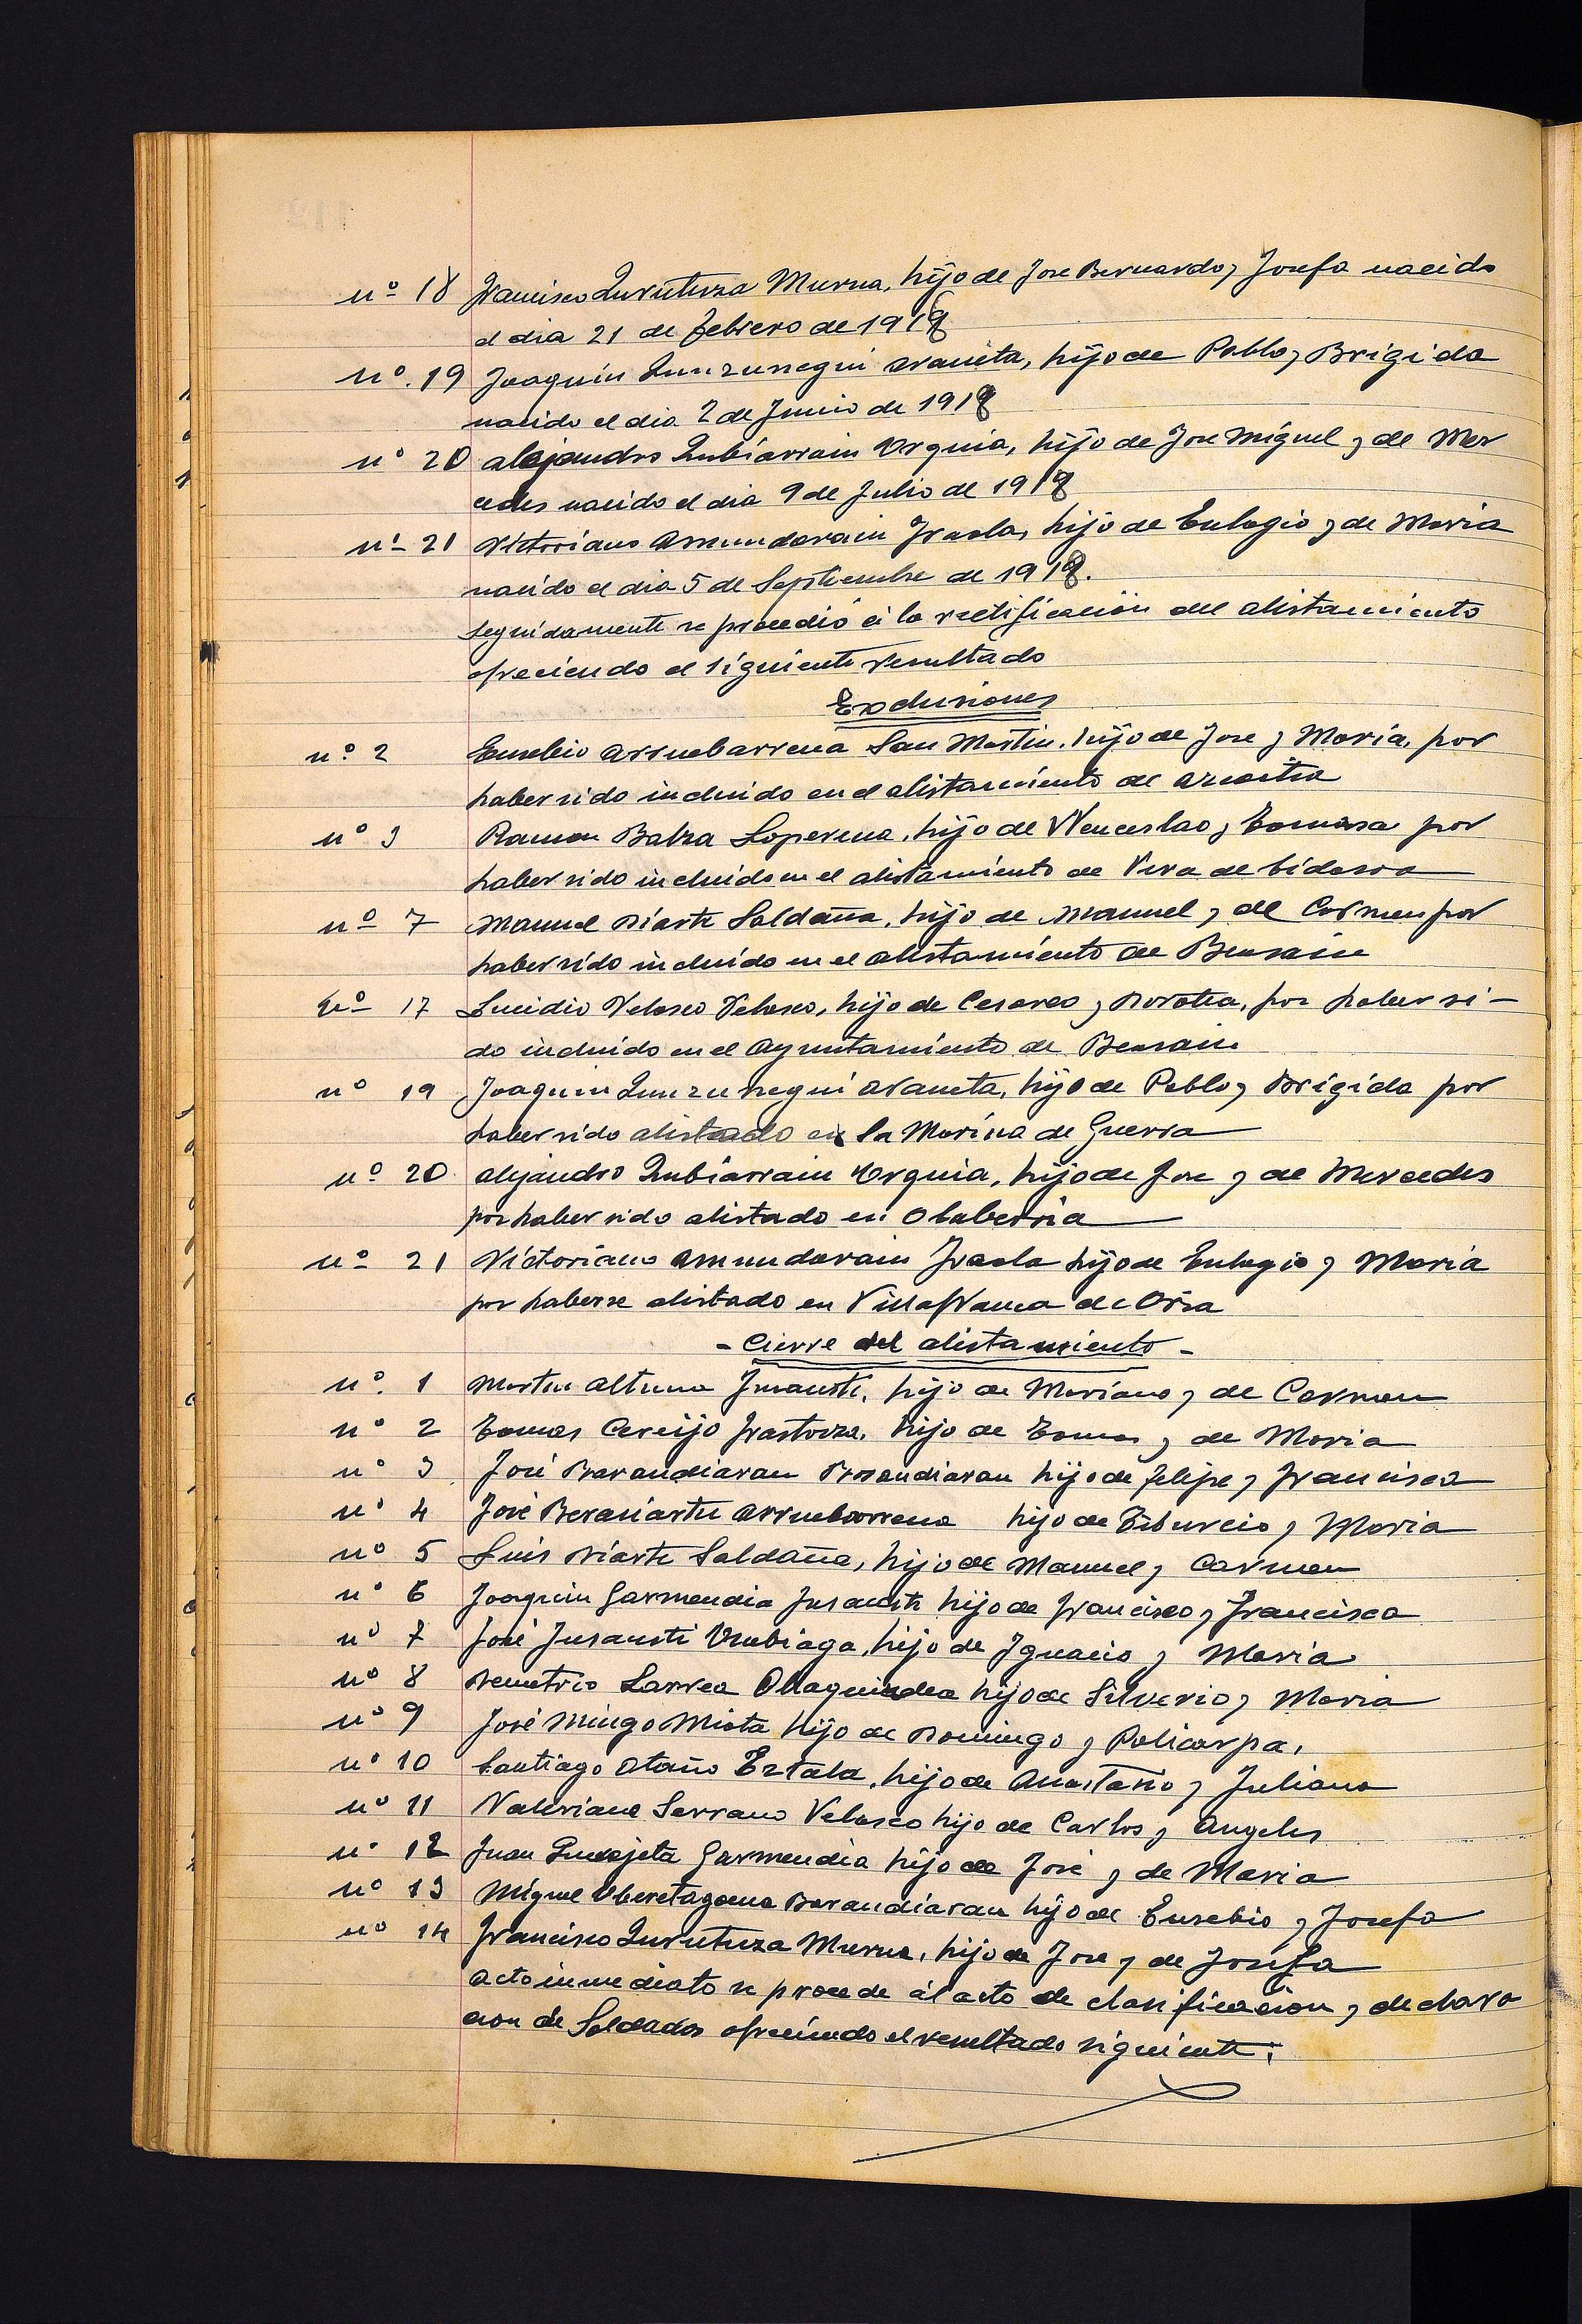 nº 18 Francisco Zurutuza Murua, hijo de Jose Bernardo y Josefa nacido
el dia 21 de febrero de 1918
nº. 19 Joaquin Zunzunegui Araneta, hijo de Pablo y Brigida
nacido el dia 2 de Junio de 1918
nº 20 Alejandro Zubiarrain Urquia, hijo de Jose Miguel y de Mer
cedes nacido el dia 9 de Julio de 1918
nº 21 Victoriano Amundarain Iraola, hijo de Eulogio y de Maria
nacido el dia 5 de Septiembre de 1918.
Seguidamente se procedió á la rectificación del alistamiento
ofreciendo el siguiente resultado
Exclusiones
nº 2 Eusebio Arruebarrena San Martin, hijo de Jose y Maria, por
haber sido incluido en el alistamiento de Azcoitia
nº 3 Ramon Balza Loperena, hijo de Wenceslao y Tomasa por
haber sido incluido en el alistamiento de Vera de bidasoa
nº 7 Manuel Diarte Saldaña, hijo de Manuel y de Carmen por
haber sido incluido en el alistamiento de Beasain
nº 17 Lucidio Velasco Velasco, hijo de Cesareo y Dorotea, por haber si-
do incluido en el Ayuntamiento de Beasain
nº 19 Joaquin Zunzunegui Araneta, hijo de Pablo y Brigida por
haber sido alistado en la Marina de Guerra
nº 20 Alejandro Zubiarrain Urquia, hijo de Jose y de Mercedes
por haber sido alistado en Olaberria
nº 21 Victoriano Amundarain Iraola hijo de Eulogio y Maria
por haberse alistado en Villafranca de Oria
- Cierre del alistamiento -
nº. 1 Martin Altuna Insausti, hijo de Mariano y de Carmen
nº 2 Tomas Cereijo Irastorza, hijo de Tomas y de Maria
nº 3 José Barandiaran Barandiaran hijo de felipe y Francisca
nº 4 José Beraciartu Arruebarrena hijo de Tiburcio y Maria
nº 5 Luis Diarte Saldaña, hijo de Manuel y Carmen
nº 6 Joaquin Garmendia Insausti hijo de Francisco y Francisca
nº 7 José Insausti Urubiaga, hijo de Ignacio y Maria
nº 8 Demetrio Larrea Ollaquindea hijo de Silverio y Maria
nº 9 José Mingo Miota hijo de Domingo y Policarpa,
nº 10 Santiago Otaño Eztala, hijo de Anastasio y Juliana
nº 11 Valeriano Serrano Velasco hijo de Carlos y Angeles
nº 12 Juan Garmendia hijo de José y de Maria
nº 13 Miguel Uberetagoena Barandiaran hijo de Eusebio y Josefa
nº 14 Francisco Zurutuza Murua, hijo de Jose y de Josefa
Acto inmediato se procede al acto de clasificación y declara
cion de Soldados ofreciendo el resultado siguiente: